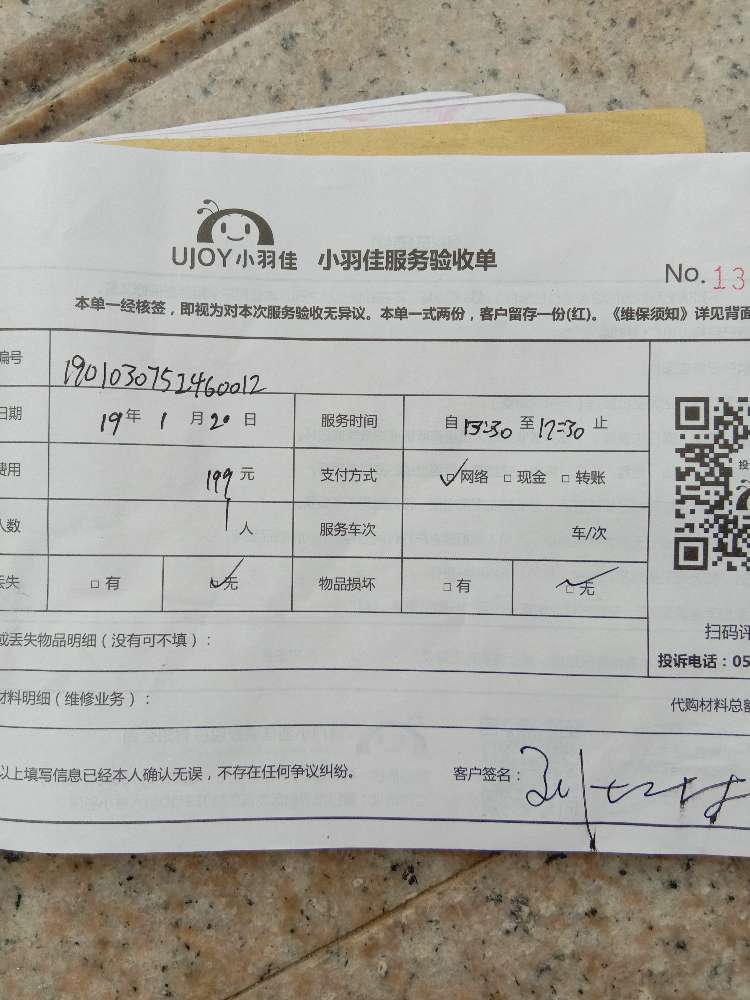 UJOY小羽佳 小羽佳服务验收单
No. 13
本单一经核签，即视为对本次服务验收无异议。本单一式两份，客户留存一份(红)。《维保须知》详见背面
编号 1901030751460012
日期 19年 1月20日 服务时间 自13:30至17:30止
费用 199元 支付方式 网络 现金 转账
人数 1人 服务车次 车/次
丢失 有 无 物品损坏 有 无
扫码评
或丢失物品明细（没有可不填）：
投诉电话：05
材料明细（维修业务）：
代购材料总额
以上填写信息已经本人确认无误，不存在任何争议纠纷。 客户签名：